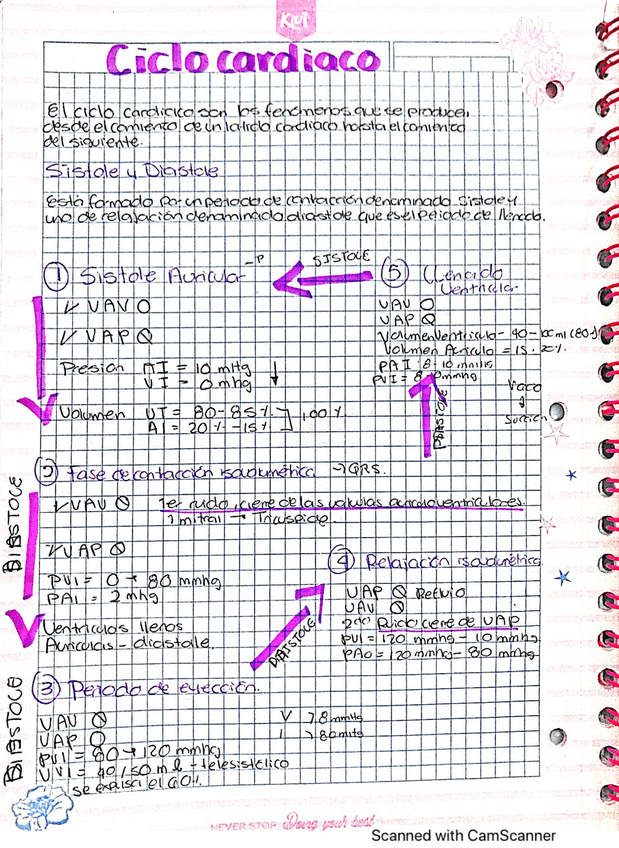 Kiut
Ciclo cardiaco
El ciclo cardiaco son los fenomenos que se producen
desde el comiento de un latido cardiaco hasta el comiento
del siguiente.
Sistole y Diastole
está formado por un periodo de contracción denominado Sistole y
uno de relajación denaminado diastole que es el periodo de llenado.
① Sistole Auricular -P
SISTOLE
✓ VAV O
✓ VAP
Presion AI = 10 mHg
VI = 0 mhg
Volumen VI = 80-85%
AI = 20% -15%
100%
⑤ Llenado
Ventricular
VAV O
VAP
Volumen Ventriculo - 40-
Volumen Auriculo = 15.20%.
PAI 8-10 mmhg
PVI = 8-10mmhg
Vaco
Succion
DIASTOLE
DIASTOLE
② Fase de contacción isovolumétrica. → QRS.
✓ VAV 1er ruido, cierre de las valvulas auriculoventriculares.
1 mitral → Tricuspide.
✓ VAP
PVI = 0 → 80 mmhg
PAI = 2 mhg
Ventriculos llenos
Auriculas - diastole.
④ Relajación isovolumétrica
VAP Reflujo
VAV
2do Ruido cierre de VAP
PVI = 120 mmhg - 10 mmhg
PAo = 120 mmhg - 80 mmhg
DIASTOLE
DIASTOLE
③ Periodo de eyección.
VAV
VAP O
PVI = 80 → 120 mmhg
VVI = 40/50 ml - telesistólico
se expulsa el 60%.
V >8 mmHg
I >80
NEVER STOP Doing your best
Scanned with CamScanner